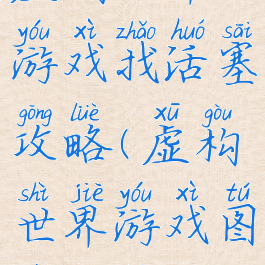 yóu xì zhǎo huó sāi
游戏找活塞
gōng lüè xū gòu
攻略(虚构
shì jiè yóu xì tú
世界游戏图